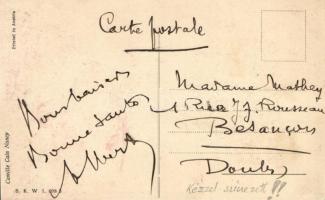 Carte postale
Printed in Austria
Camille Calo Nancy
B. K. W. I.
Bons baisers
Bonne Santé
Albert
Madame Mathey
1 Rue J.J. Rousseau
Besançon
Doubs
Kézzel színezett!!